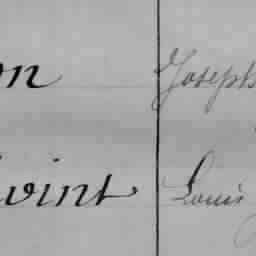 on Joseph
vint Louis